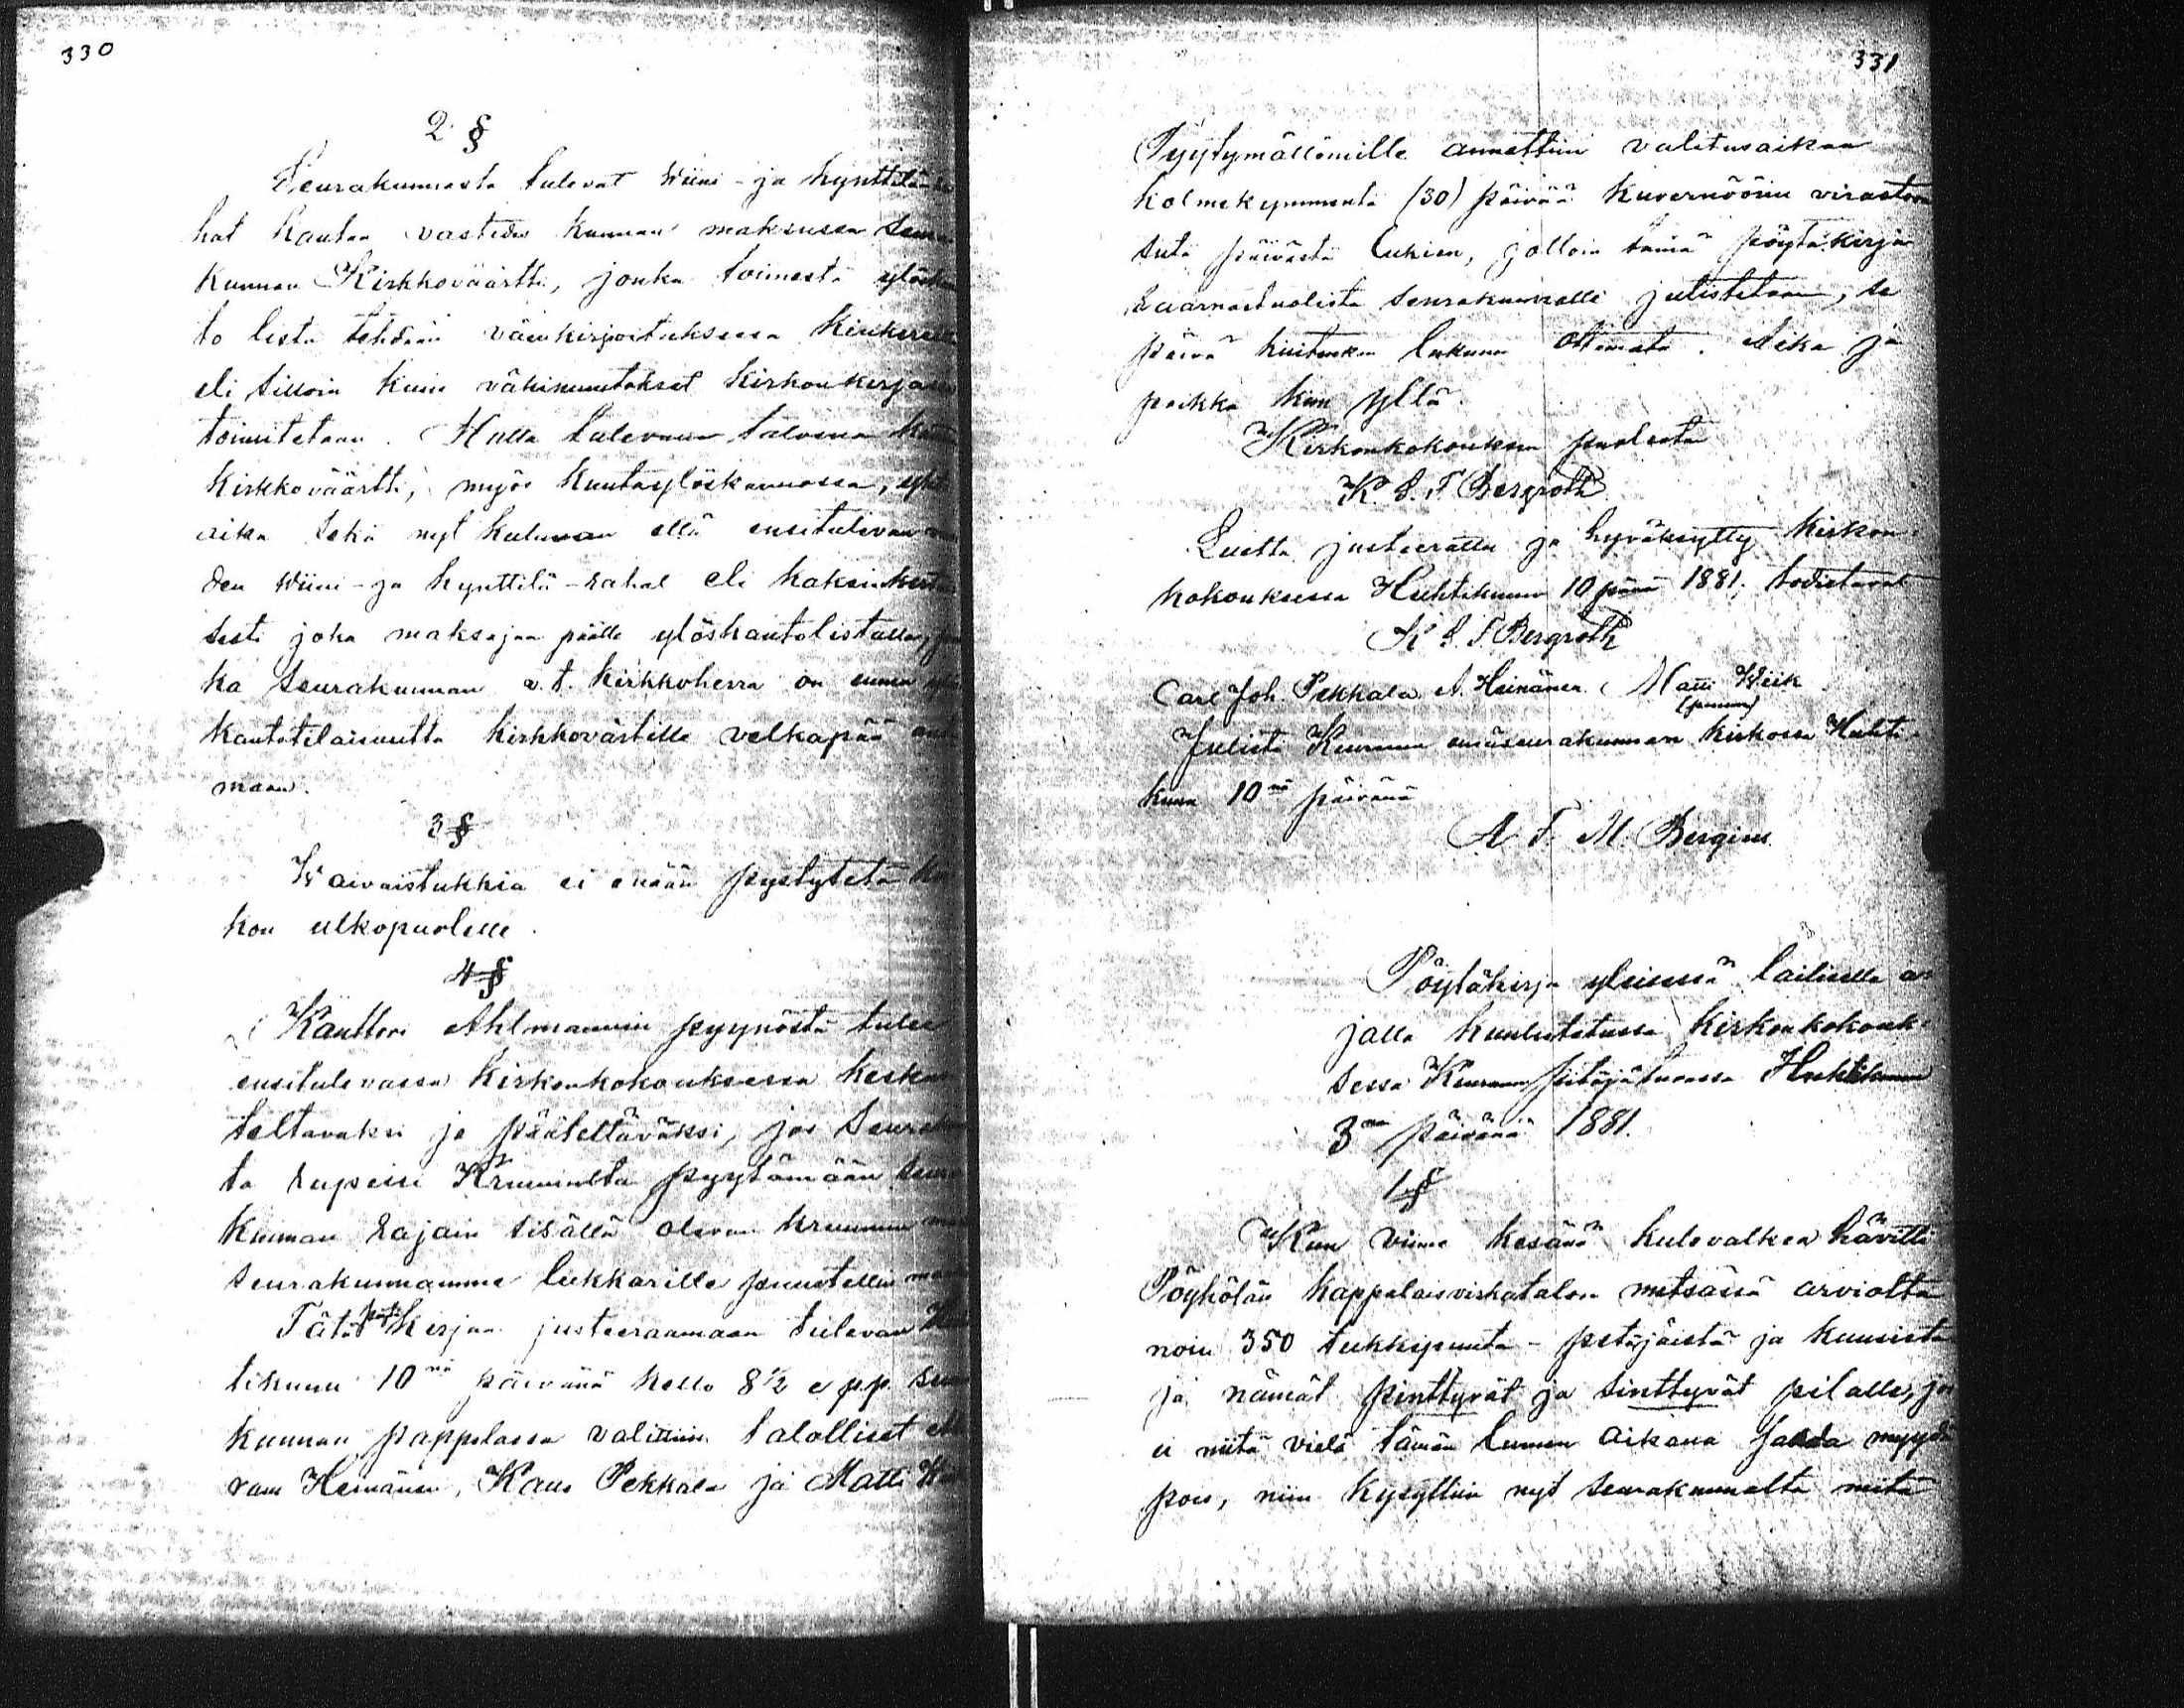 330
2 §
Seurakunnasta tulevat Wiini- ja kynttilä
hat kantaa vastedes kunnan maksussa Seura
kunnan Kirkkoväärtti, jonka toimesta ylöskan
to lista tehdään väenkirjoituksessa
eli silloin kuin vähimmutokset kirkonkirjaan
toimitetaan. Halla tulevana talvena kan
Kirkkoväärtti, myös kuntaylöskannossa, yht
aika sekä nyt kuluvan että ensitulevan
den Wiini- ja kynttilä-rahat eli kaksinkert
sesti joka maksajan päälle ylöskantolistalla, jon
ka Seurakunnan v.t. kirkkoherra on ennen
kantotilaisuutta kirkkovärtille velkapää an
maan.
3 §
Waivaistukkia ei enään pystytetä
kon ulkopuolelle.
4 §
Kanttori Ahlmannin pyynöstä tulee
ensitulevassa Kirkonkokouksessa keskus
teltavaksi ja päätettäväksi, jos Seurakun
ta rupeisi Kruunulta pyytämään seura
kunnan rajain sisällä olevan kruunun
seurakunnamme lukkarille puustellin
Tätä pöytäkirjaa justeeraamaan tulevan Huh
tikuun 10nä päivänä kello 8 1/2 e.pp. Seura
kunnan pappilassa valittiin talolliset
ram Heinänen, Kaus Pekkala ja Matti W
331
Tyytymättömille annettiin valitusaikaa
kolmekymmentä (30) päivää kuvernöörin virastoon
siitä päivästä lukien, jolloin tämä pöytäkirja
saarnastuolista seurakunnalle julistetaan, se
päivä kuitenkin lukuun ottamata. Aika ja
paikka kun yllä.
Kirkonkokouksen puolesta
K. S. F. Bergroth
Luettu, justeerattu ja hyväksytty kirkon-
kokouksessa Huhtikuun 10 pänä 1881, todistavat
K. S. F. Bergroth
Carl Joh. Pekkala A. Heinänen Matti Wiik
Julista Keuruun emäseurakunnan kirkossa Huhti-
kuun 10nä päivänä
A. F. M. Bergius
Pöytäkirja yleisessä lailisella a-
jalla kuulutetussa kirkonkokouk-
sessa Keuruun pitäjätuvassa Huhtikuun
3na päivänä 1881.
1 §
Kun viime kesänä kulovalkea hävitti
Pöyhölän kappalaisvirkatalon metsässä arviolta
noin 350 tukkipuuta - petäjäistä ja kuusista
ja nämät pinttyvät ja sinttyvät pilalle, jos
ei niitä vielä tämän lumen aikana saada myydä
pois, niin kysyttiin nyt seurakunnalta mitä